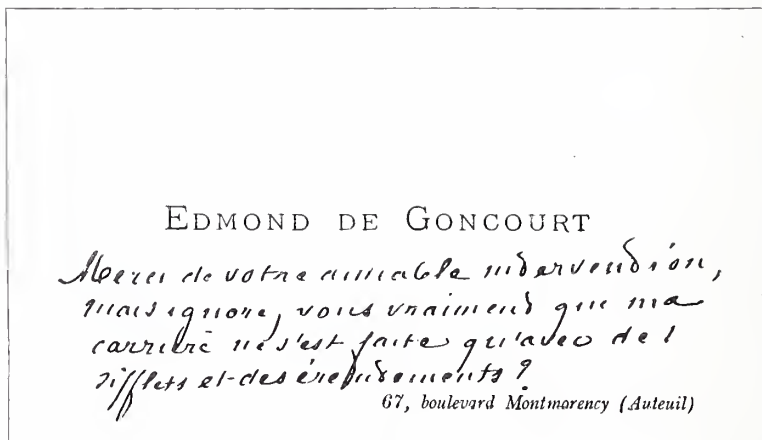 EDMOND DE GONCOURT
Merci de votre aimable intervention,
mais ignorez vous vraiment que ma
carrière ne s'est faite qu'avec des
sifflets et des éreintements ?
67, boulevard Montmorency (Auteuil)